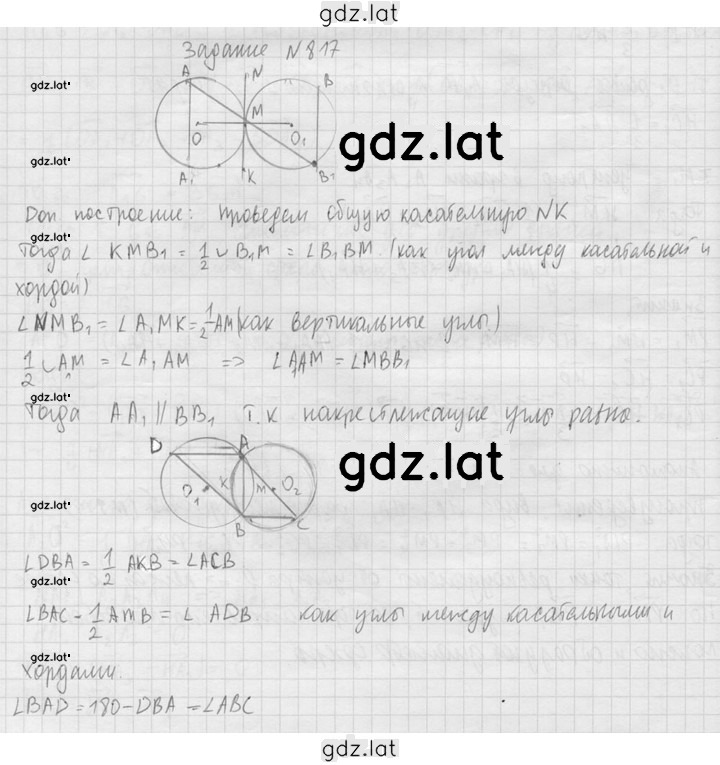 gdz.lat
Задание N 817
A N B
gdz.lat
M
O O₁
gdz.lat
A₁ K B₁
gdz.lat
Доп построение: Проведем общую касательную NK
gdz.lat
Тогда ∠ KMB₁ = 1/2 ∪ B₁M = ∠B₁BM. (как угол между касательной и
хордой)
gdz.lat
∠NMB₁ = ∠A₁MK = 1/2 AM (как вертикальные углы)
1/2 ∪ AM = ∠A₁AM => ∠A₁AM = ∠MBB₁
gdz.lat
Тогда AA₁ || BB₁ т.к накрестлежащие углы равны.
D A
gdz.lat
O₁ K M O₂
gdz.lat
B C
gdz.lat
∠DBA = 1/2 AKB = ∠ACB
gdz.lat
∠BAC - 1/2 AmB = ∠ ADB как углы между касательными и
gdz.lat
хордами.
∠BAD = 180 - DBA = ∠ABC
gdz.lat